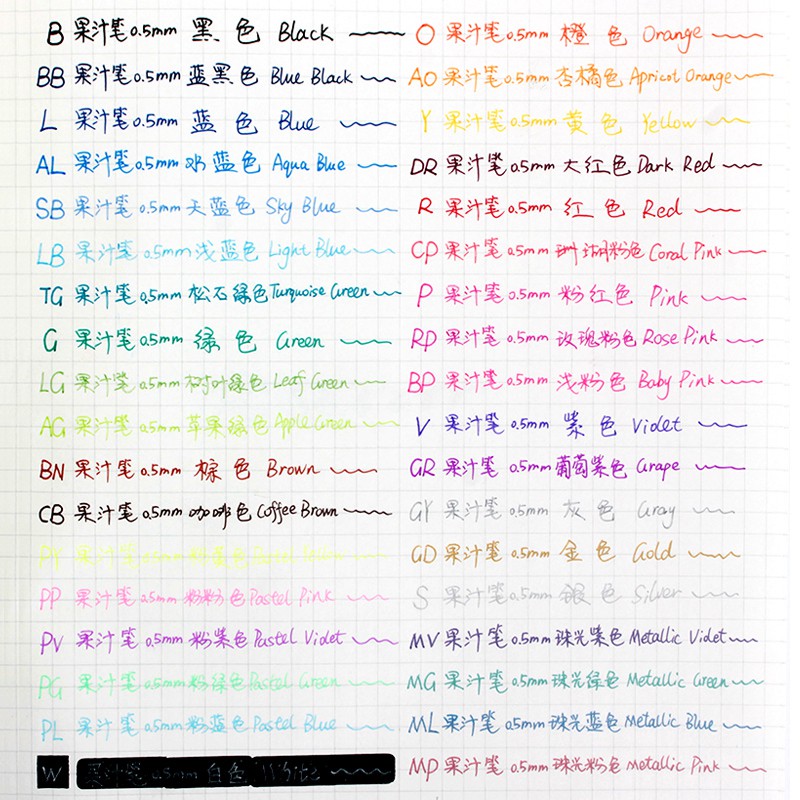 B 果汁笔 0.5mm 黑色 Black
BB 果汁笔 0.5mm 蓝黑色 Blue Black
L 果汁笔 0.5mm 蓝色 Blue
AL 果汁笔 0.5mm 水蓝色 Aqua Blue
SB 果汁笔 0.5mm 天蓝色 Sky Blue
LB 果汁笔 0.5mm 浅蓝色 Light Blue
TG 果汁笔 0.5mm 松石绿色 Turquoise Green
G 果汁笔 0.5mm 绿色 Green
LG 果汁笔 0.5mm 树叶绿色 Leaf Green
AG 果汁笔 0.5mm 苹果绿色 Apple Green
BN 果汁笔 0.5mm 棕色 Brown
CB 果汁笔 0.5mm 咖啡色 Coffee Brown
PY 果汁笔 0.5mm 粉黄色 Pastel Yellow
PP 果汁笔 0.5mm 粉粉色 Pastel Pink
PV 果汁笔 0.5mm 粉紫色 Pastel Videt
PG 果汁笔 0.5mm 粉绿色 Pastel Green
PL 果汁笔 0.5mm 粉蓝色 Pastel Blue
W 果汁笔 0.5mm 白色 White
O 果汁笔 0.5mm 橙色 Orange
AO 果汁笔 0.5mm 杏橘色 Apricot Orange
Y 果汁笔 0.5mm 黄色 Yellow
DR 果汁笔 0.5mm 大红色 Dark Red
R 果汁笔 0.5mm 红色 Red
CP 果汁笔 0.5mm 珊瑚粉色 Coral Pink
P 果汁笔 0.5mm 粉红色 Pink
RP 果汁笔 0.5mm 玫瑰粉色 Rose Pink
BP 果汁笔 0.5mm 浅粉色 Baby Pink
V 果汁笔 0.5mm 紫色 Videt
GR 果汁笔 0.5mm 葡萄紫色 Grape
GY 果汁笔 0.5mm 灰色 Gray
GD 果汁笔 0.5mm 金色 Gold
S 果汁笔 0.5mm 银色 Silver
MV 果汁笔 0.5mm 珠光紫色 Metallic Videt
MG 果汁笔 0.5mm 珠光绿色 Metallic Green
ML 果汁笔 0.5mm 珠光蓝色 Metallic Blue
MP 果汁笔 0.5mm 珠光粉色 Metallic Pink